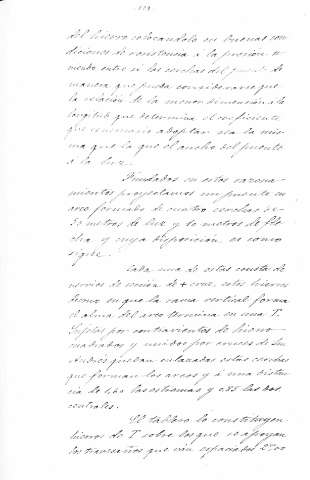 del hierro colocandolo en buenas con
diciones de resistencia a la presion,
mendo entre si las cerchas del puente de
manera que pueda considerarse que
la relación de la menor dimensión a la
longitud que determina el coeficiente
que es necesario adoptar sea la mis-
ma que la que el ancho del puente
a la luz.
Fundados en estos razona-
mientos proyectamos un puente en
arco formado de cuatro cerchas de
50 metros de luz y 10 metros de fle-
cha y cuya disposición es como
sigue.
Cada una de estas consta de
nervios de sección de + cruz, estos hierros
en que la rama vertical forma
el alma del arco termina en una T.
Sujetos por contravientos de hierro
cuadrados y unidos por cruces de San
Andrés quedan enlazadas estas cerchas
que forman los arcos y á una distan
cia de las estremas y las dos
centrales.
El tablero lo constituyen
hierros de T sobre los que se apoyan
los travesaños que van espaciados